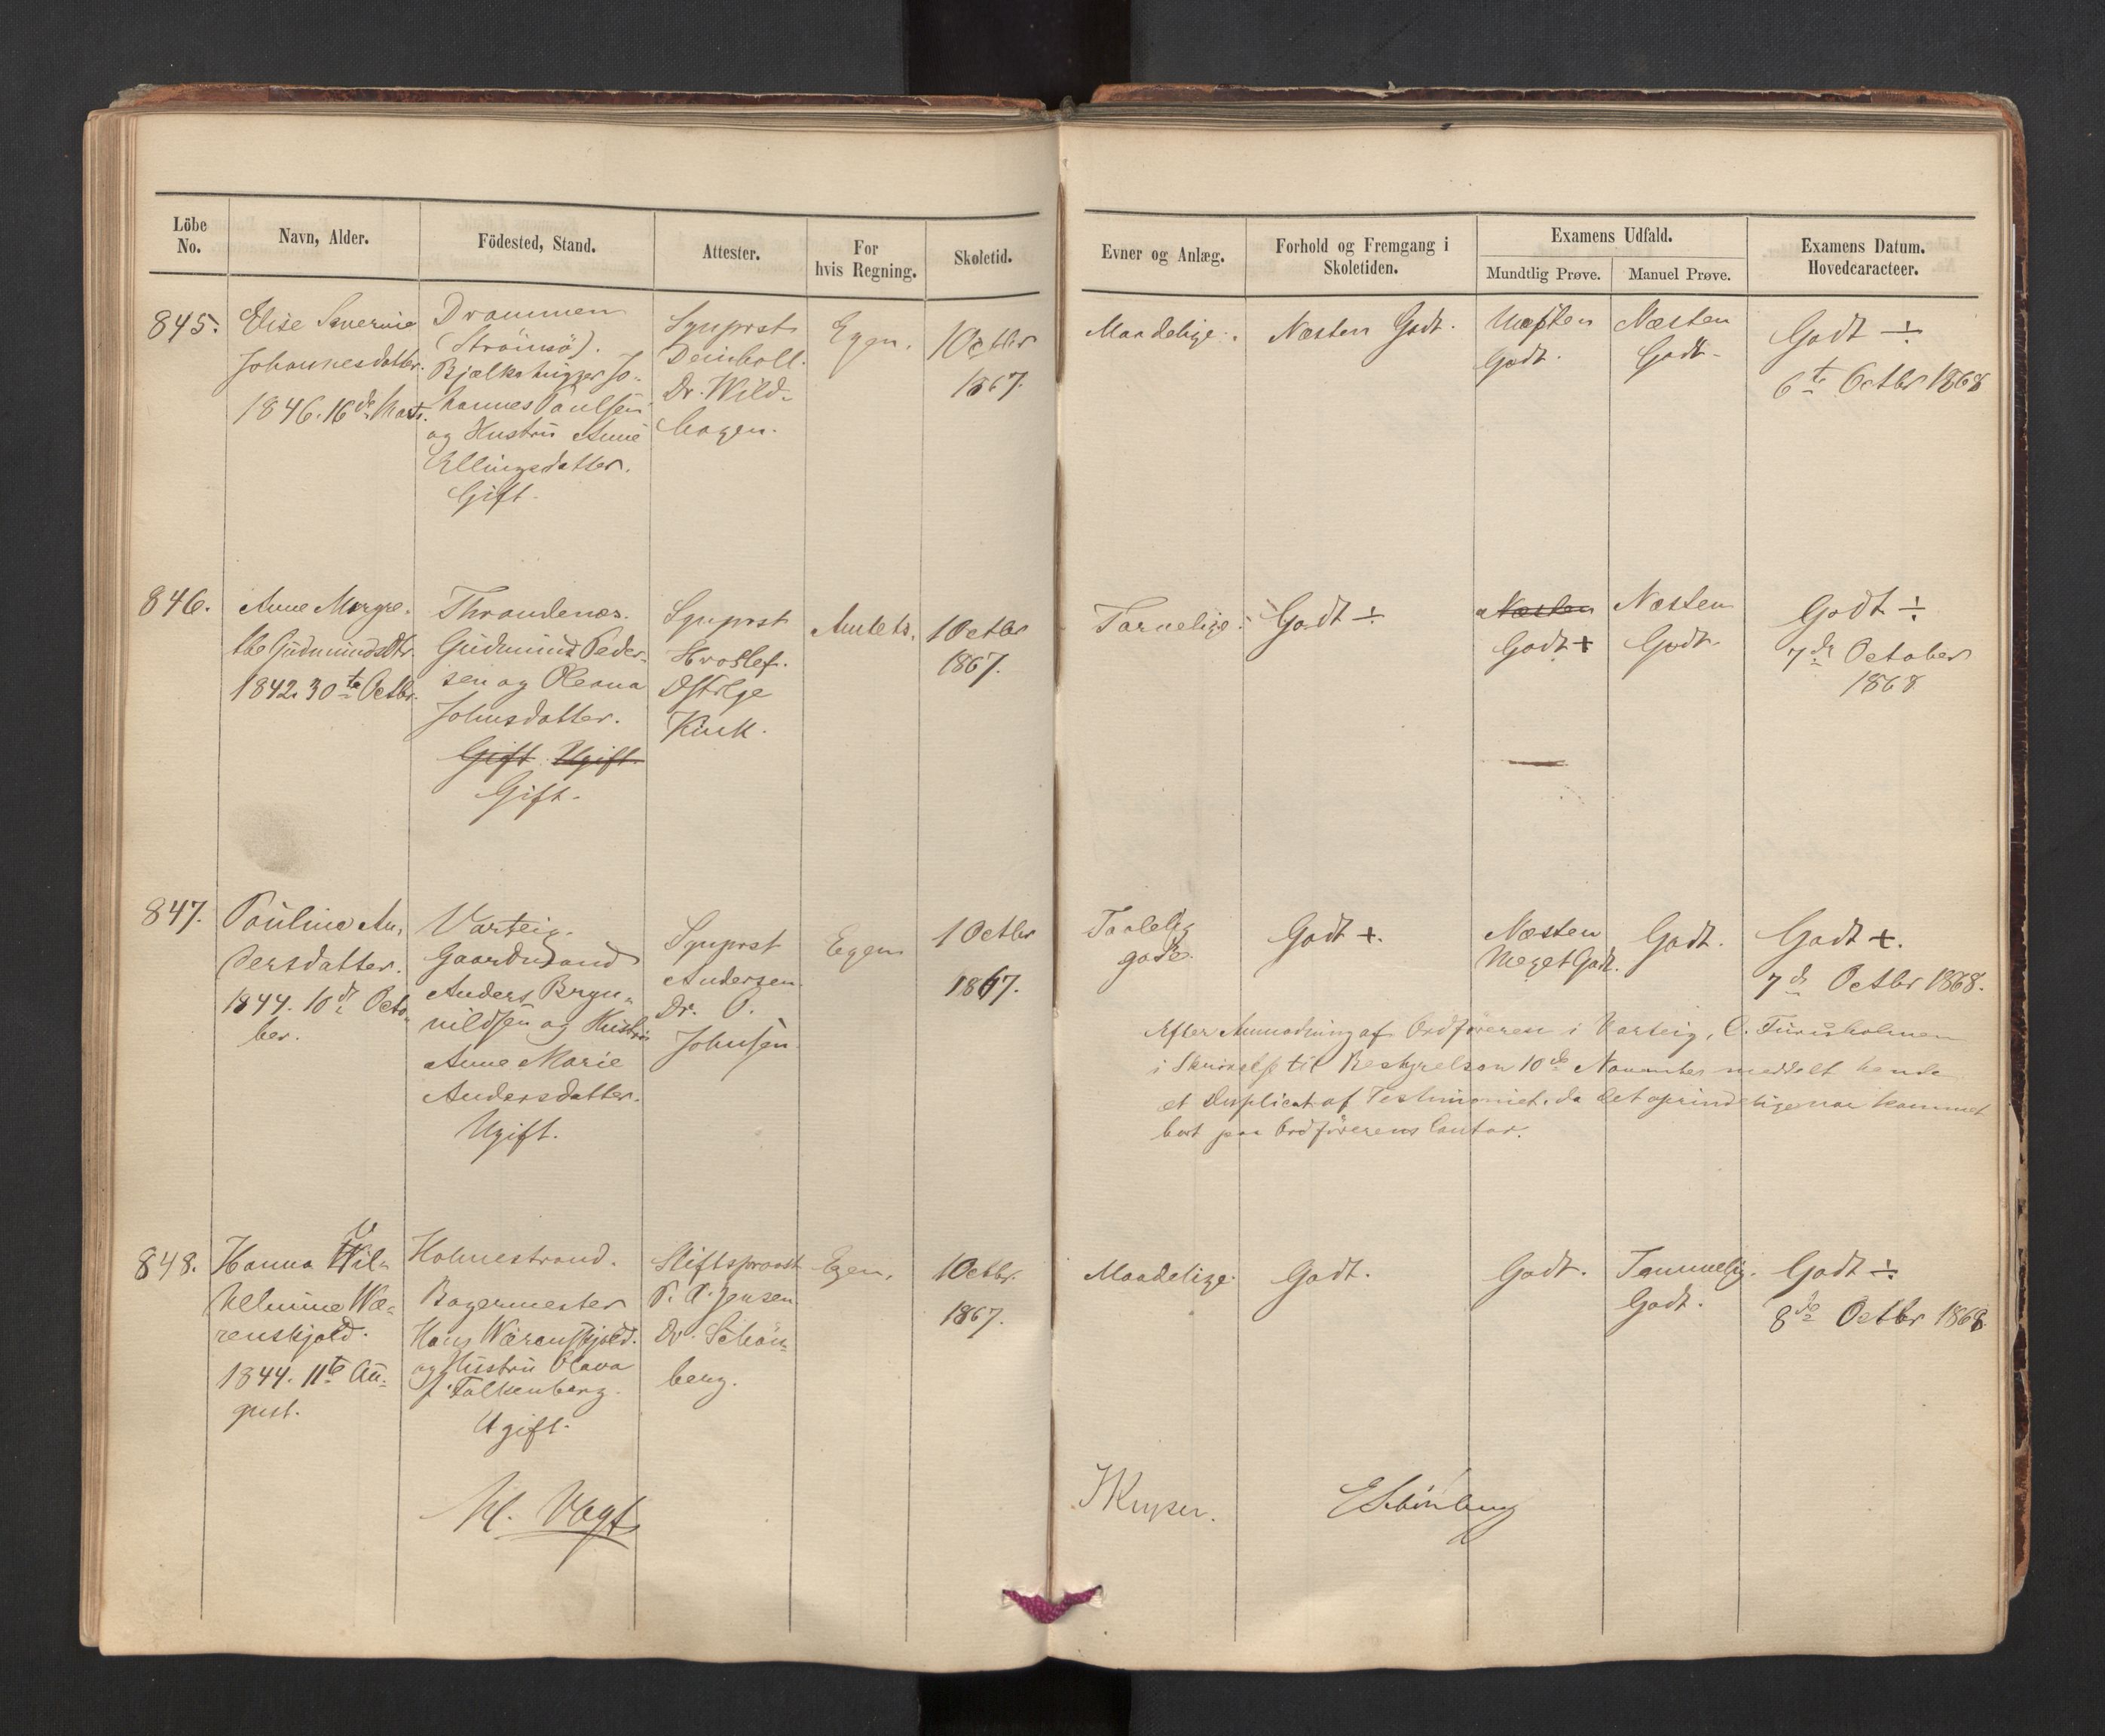 Löbe No.
Navn, Alder.
Födested, Stand.
Attester.
For hvis Regning.
Skoletid.
Evner og Anlæg.
Forhold og Fremgang i Skoletiden.
Examens Udfald.
Mundtlig Prøve.
Manuel Prøve.
Examens Datum. Hovedcaracteer.
845.
Elise Severine
Johannesdatter.
1846. 16de Marts.
Drammen
(Strömsö).
Bjælkehugger Jo-
hannes Paulsen
og Hustru Anne
Ellingsdatter.
Gift.
Sgnprst
Deinboll.
Dr. Wild-
hagen.
Egen.
1 Octbr
1867.
Maadelige.
Næsten Godt.
Næsten
Godt.
Næsten
Godt.
Godt ÷
6te Octbr 1868
846.
Anne Margre-
the Gudmundsdtr.
1842. 30te Octbr.
Throndenæs.
Gudmund Peder-
sen og Oleana
Johnsdatter.
Gift. Ugift.
Gift.
Sgnprst
Hroslef.
Dstrlge
Kink.
Amtets.
1 Octbr
1867.
Tarvelige.
Godt ÷
Næsten
Godt +
Næsten
Godt.
Godt ÷
7de October
1868
847.
Pauline An-
dersdatter.
1844. 10de Octo-
ber.
Varteig.
Gaardmand
Anders Bryn-
nildsen og Hustru
Anne Marie
Andersdatter.
Ugift.
Sgnprst
Andersen.
Dr. O.
Johnsen.
Egen
1 Octbr
1867.
Taalelig
gode.
Godt +.
Næsten
Meget Godt.
Godt.
Godt +.
7de Octbr 1868.
Efter Anmodning af Ordföreren i Varteig, C.
i Skrivelse til Bestyrelsen 10de November meddelt hende
et Duplicat af Testimoniet, da det oprindelige var kommet
bort paa Ordförerens Contor.
848.
Hanna Wil-
helmine Wæ-
renskjold.
1844. 11te Au-
gust.
Holmestrand.
Bagermester
Hans Wærenskjold.
og Hustru Olava
f. Falkenberg.
Ugift.
Stiftsprovst
P. A. Jensen
Dr. Schön-
berg.
Egen.
1 Octbr.
1867.
Maadelige.
Godt.
Godt.
Temmelig
Godt.
Godt ÷
8de Octbr 1868.
M. Vogt
ESchönberg